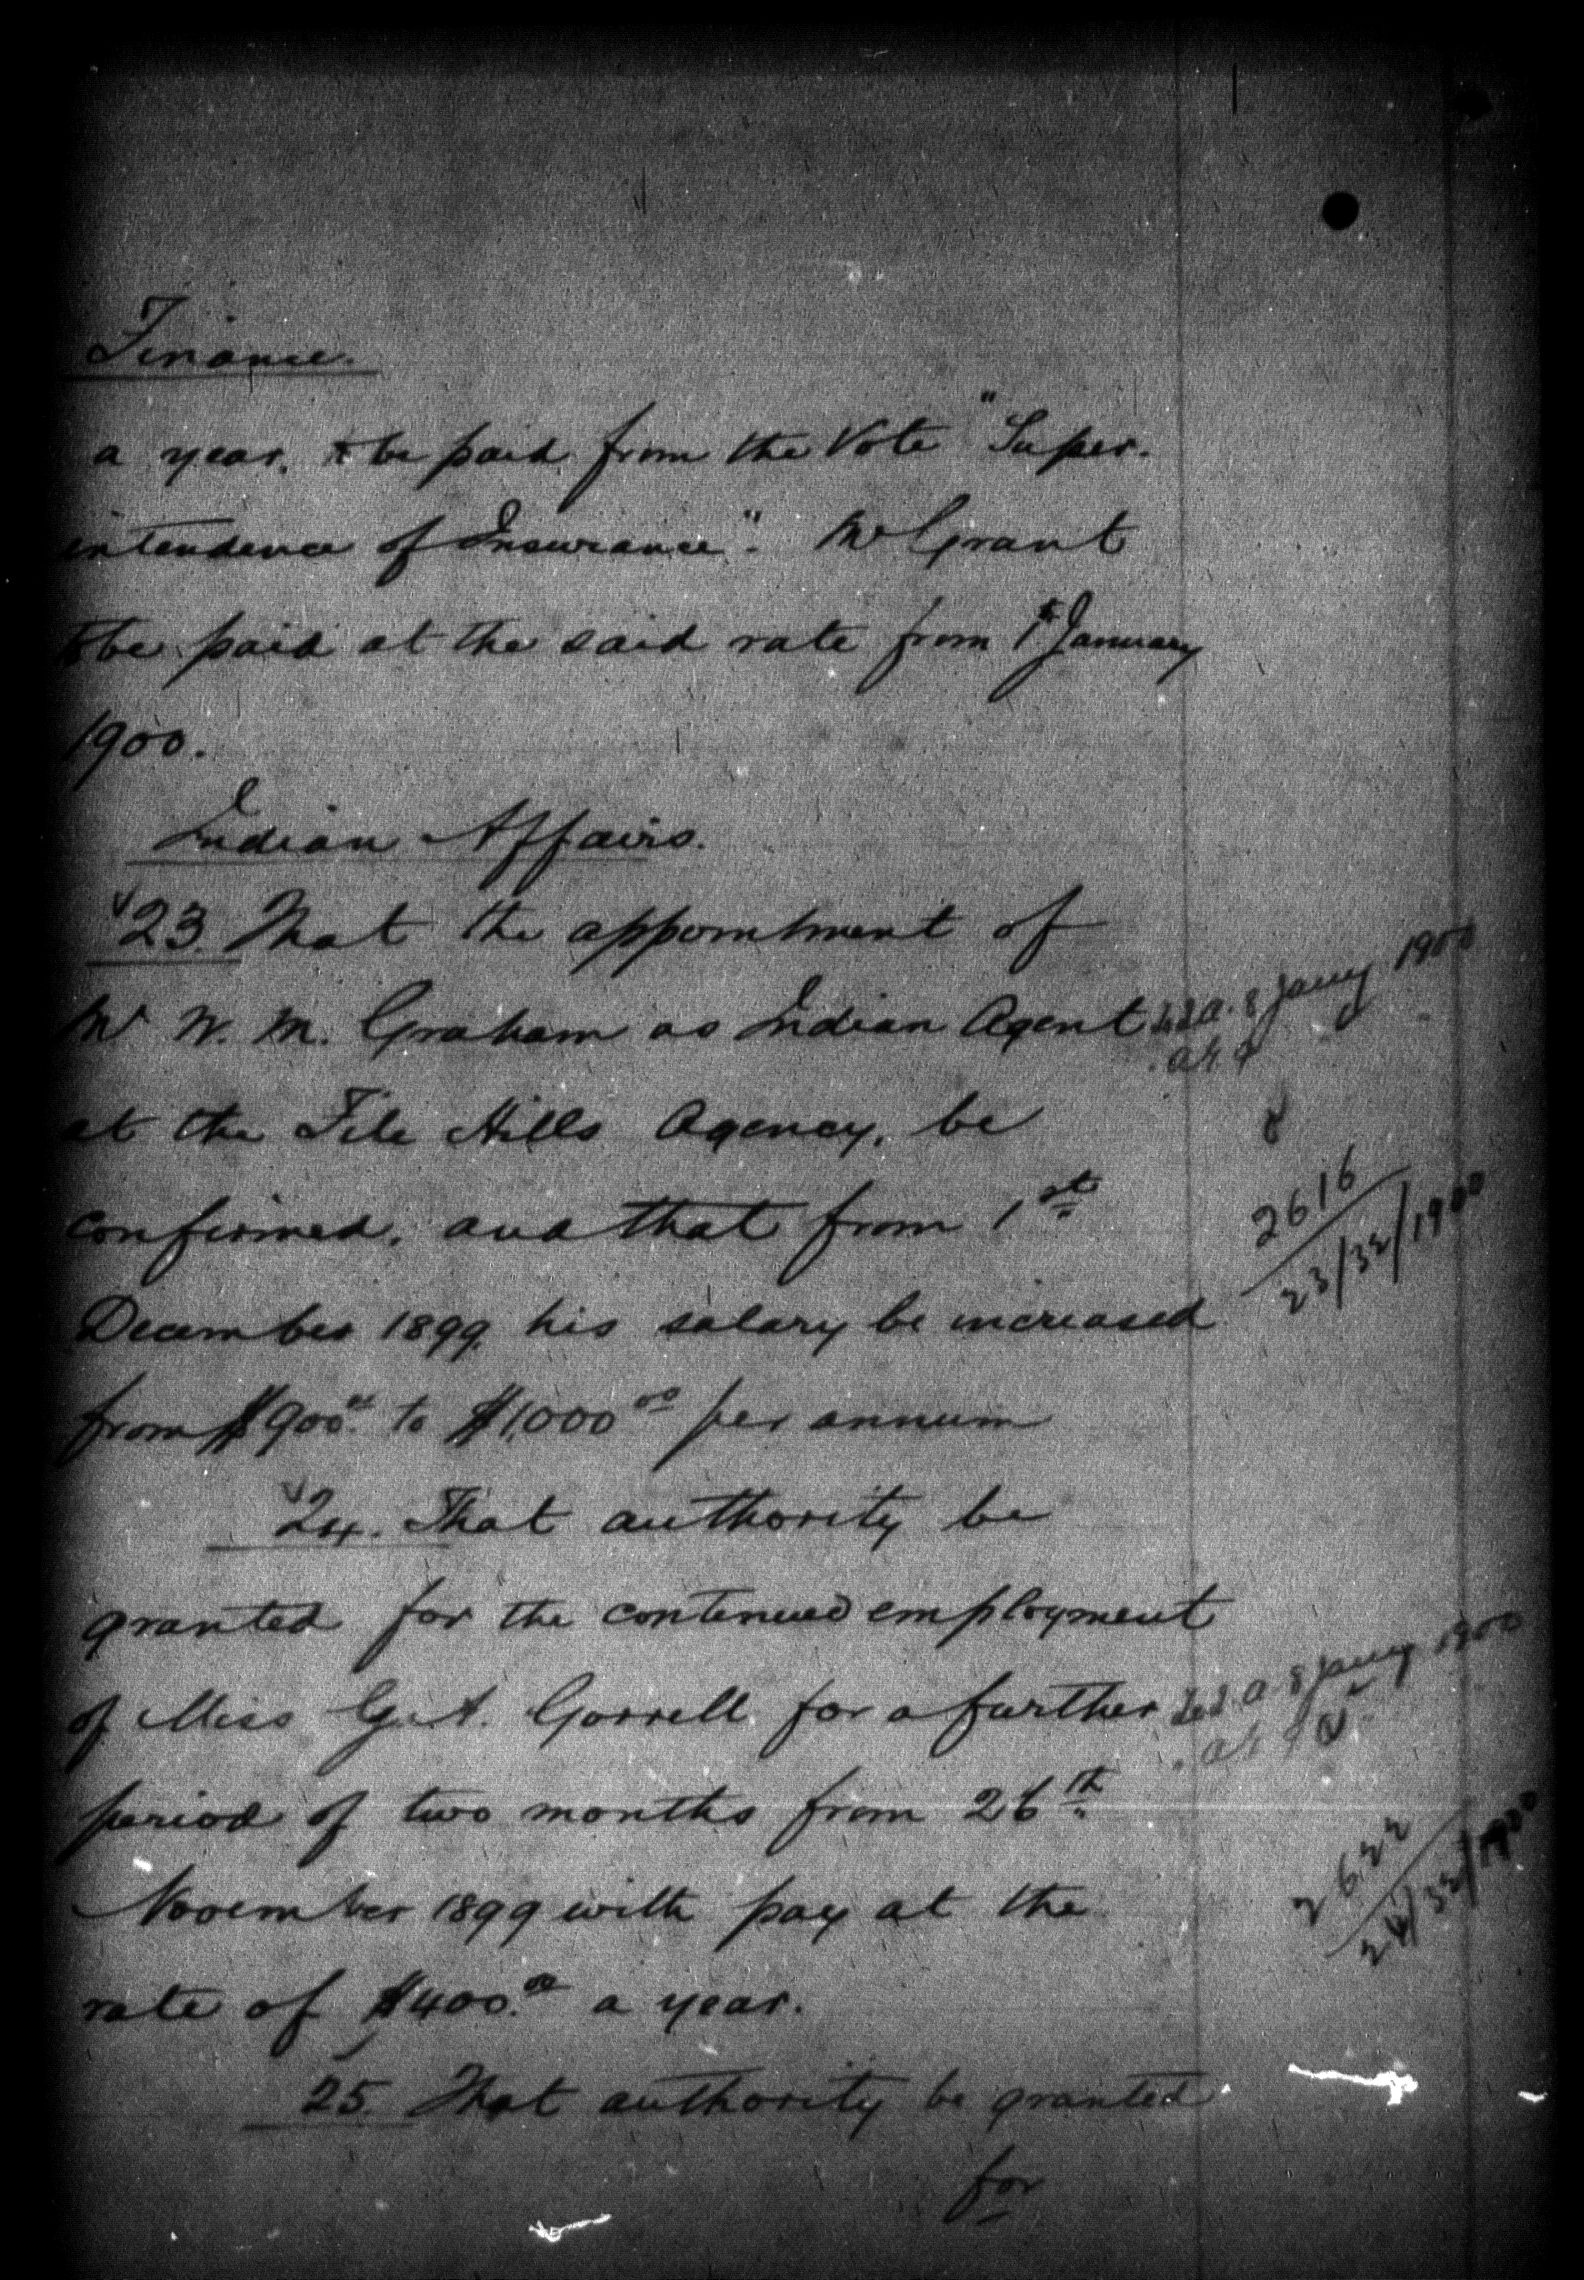 Finance.
a year, to be paid from the Vote "Super-
intendence of Insurance". Mr Grant
to be paid at the said rate from 1st January
1900.
Indian Affairs.
23. That the appointment of
Mr W. M. Graham as Indian Agent
8 Jany 1900
at the File Hills Agency, be
confirmed, and that from 1st
2616
23/32/1900
December 1899, his salary be increased
from $900.00 to $1,000.00 per annum
24. That authority be
granted for the continued employment
of Miss G. A. Gorrell for a further
8 Jany 1900
period of two months from 26th
November 1899 with pay at the
2622
24/32/1900
rate of $400.00 a year.
25. That authority be granted
for